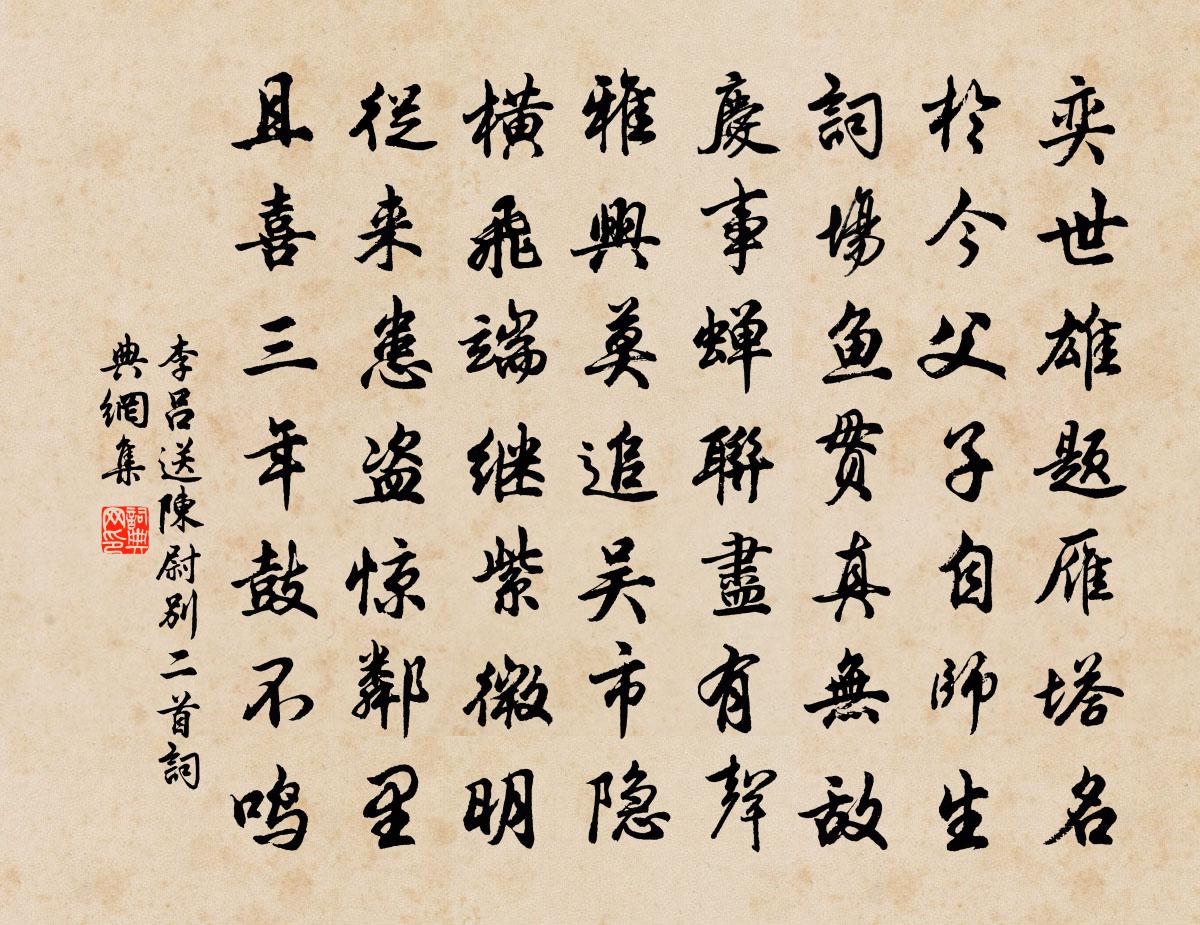 奕世雄題雁塔名
於今父子自師生
詞場魚貫真無敌
慶事蝉聯盡有聲
雅興莫追吴市隐
橫飛端继紫微明
從来患盗惊鄰里
且喜三年鼓不鸣
李呂送陳尉別二首詞
典網集
詞典
网印